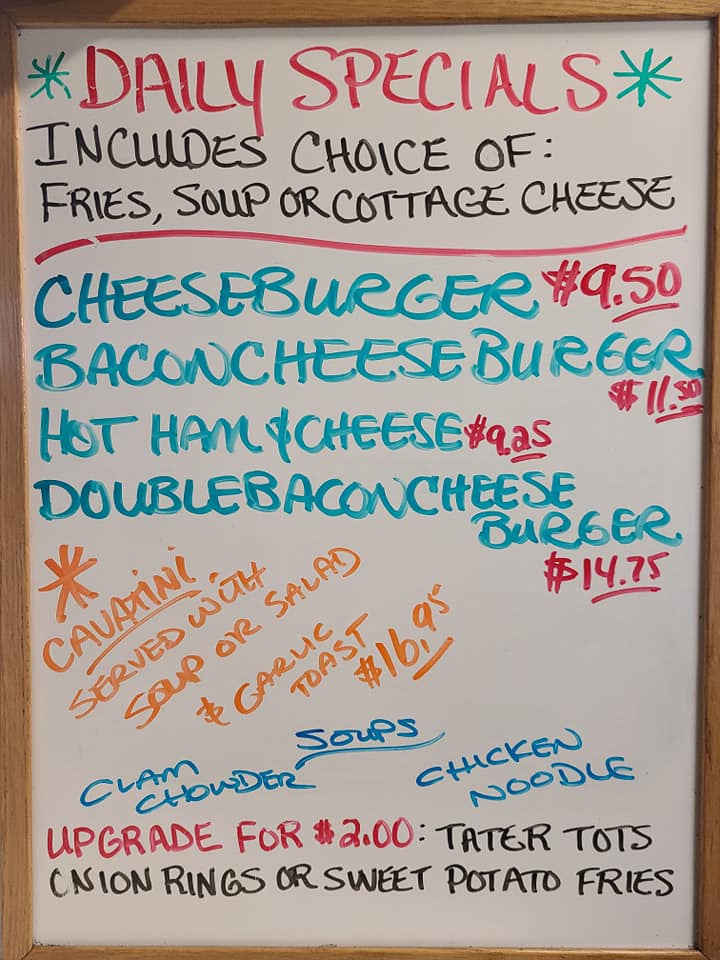 DAILY SPECIALS
INCLUDES CHOICE OF:
FRIES, SOUP OR COTTAGE CHEESE
CHEESEBURGER $9.50
BACONCHEESEBURGER
$11.50
HOT HAM & CHEESE $9.25
DOUBLE BACON CHEESE
BURGER
$14.75
CAVATINI
SERVED WITH
SOUP OR SALAD
& GARLIC
TOAST
$16.95
SOUPS
CLAM
CHOWDER
CHICKEN
NOODLE
UPGRADE FOR $2.00: TATER TOTS
ONION RINGS OR SWEET POTATO FRIES